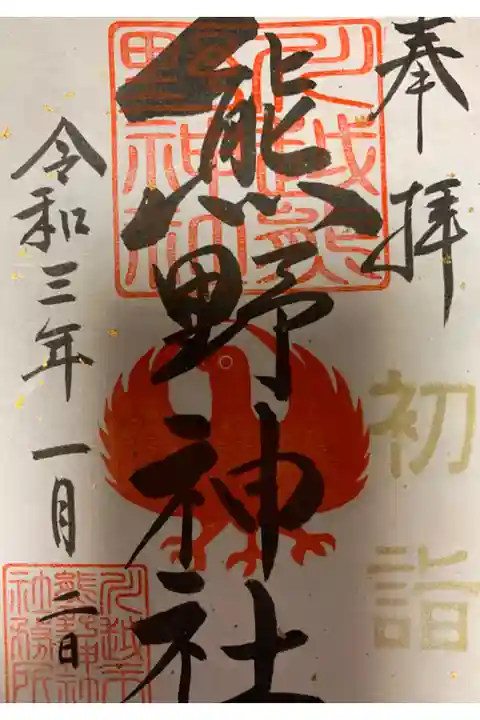 奉拝
初詣
川越熊野神社
熊野神社
令和三年一月二日
川越市熊野神社社務所